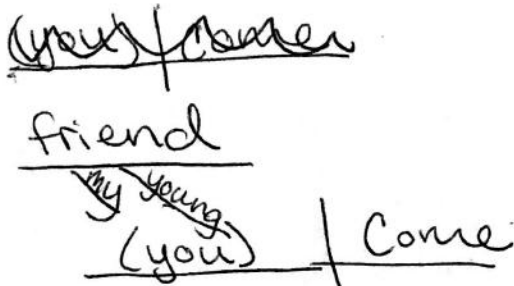 (you) Comes
friend
my young
(you) Come